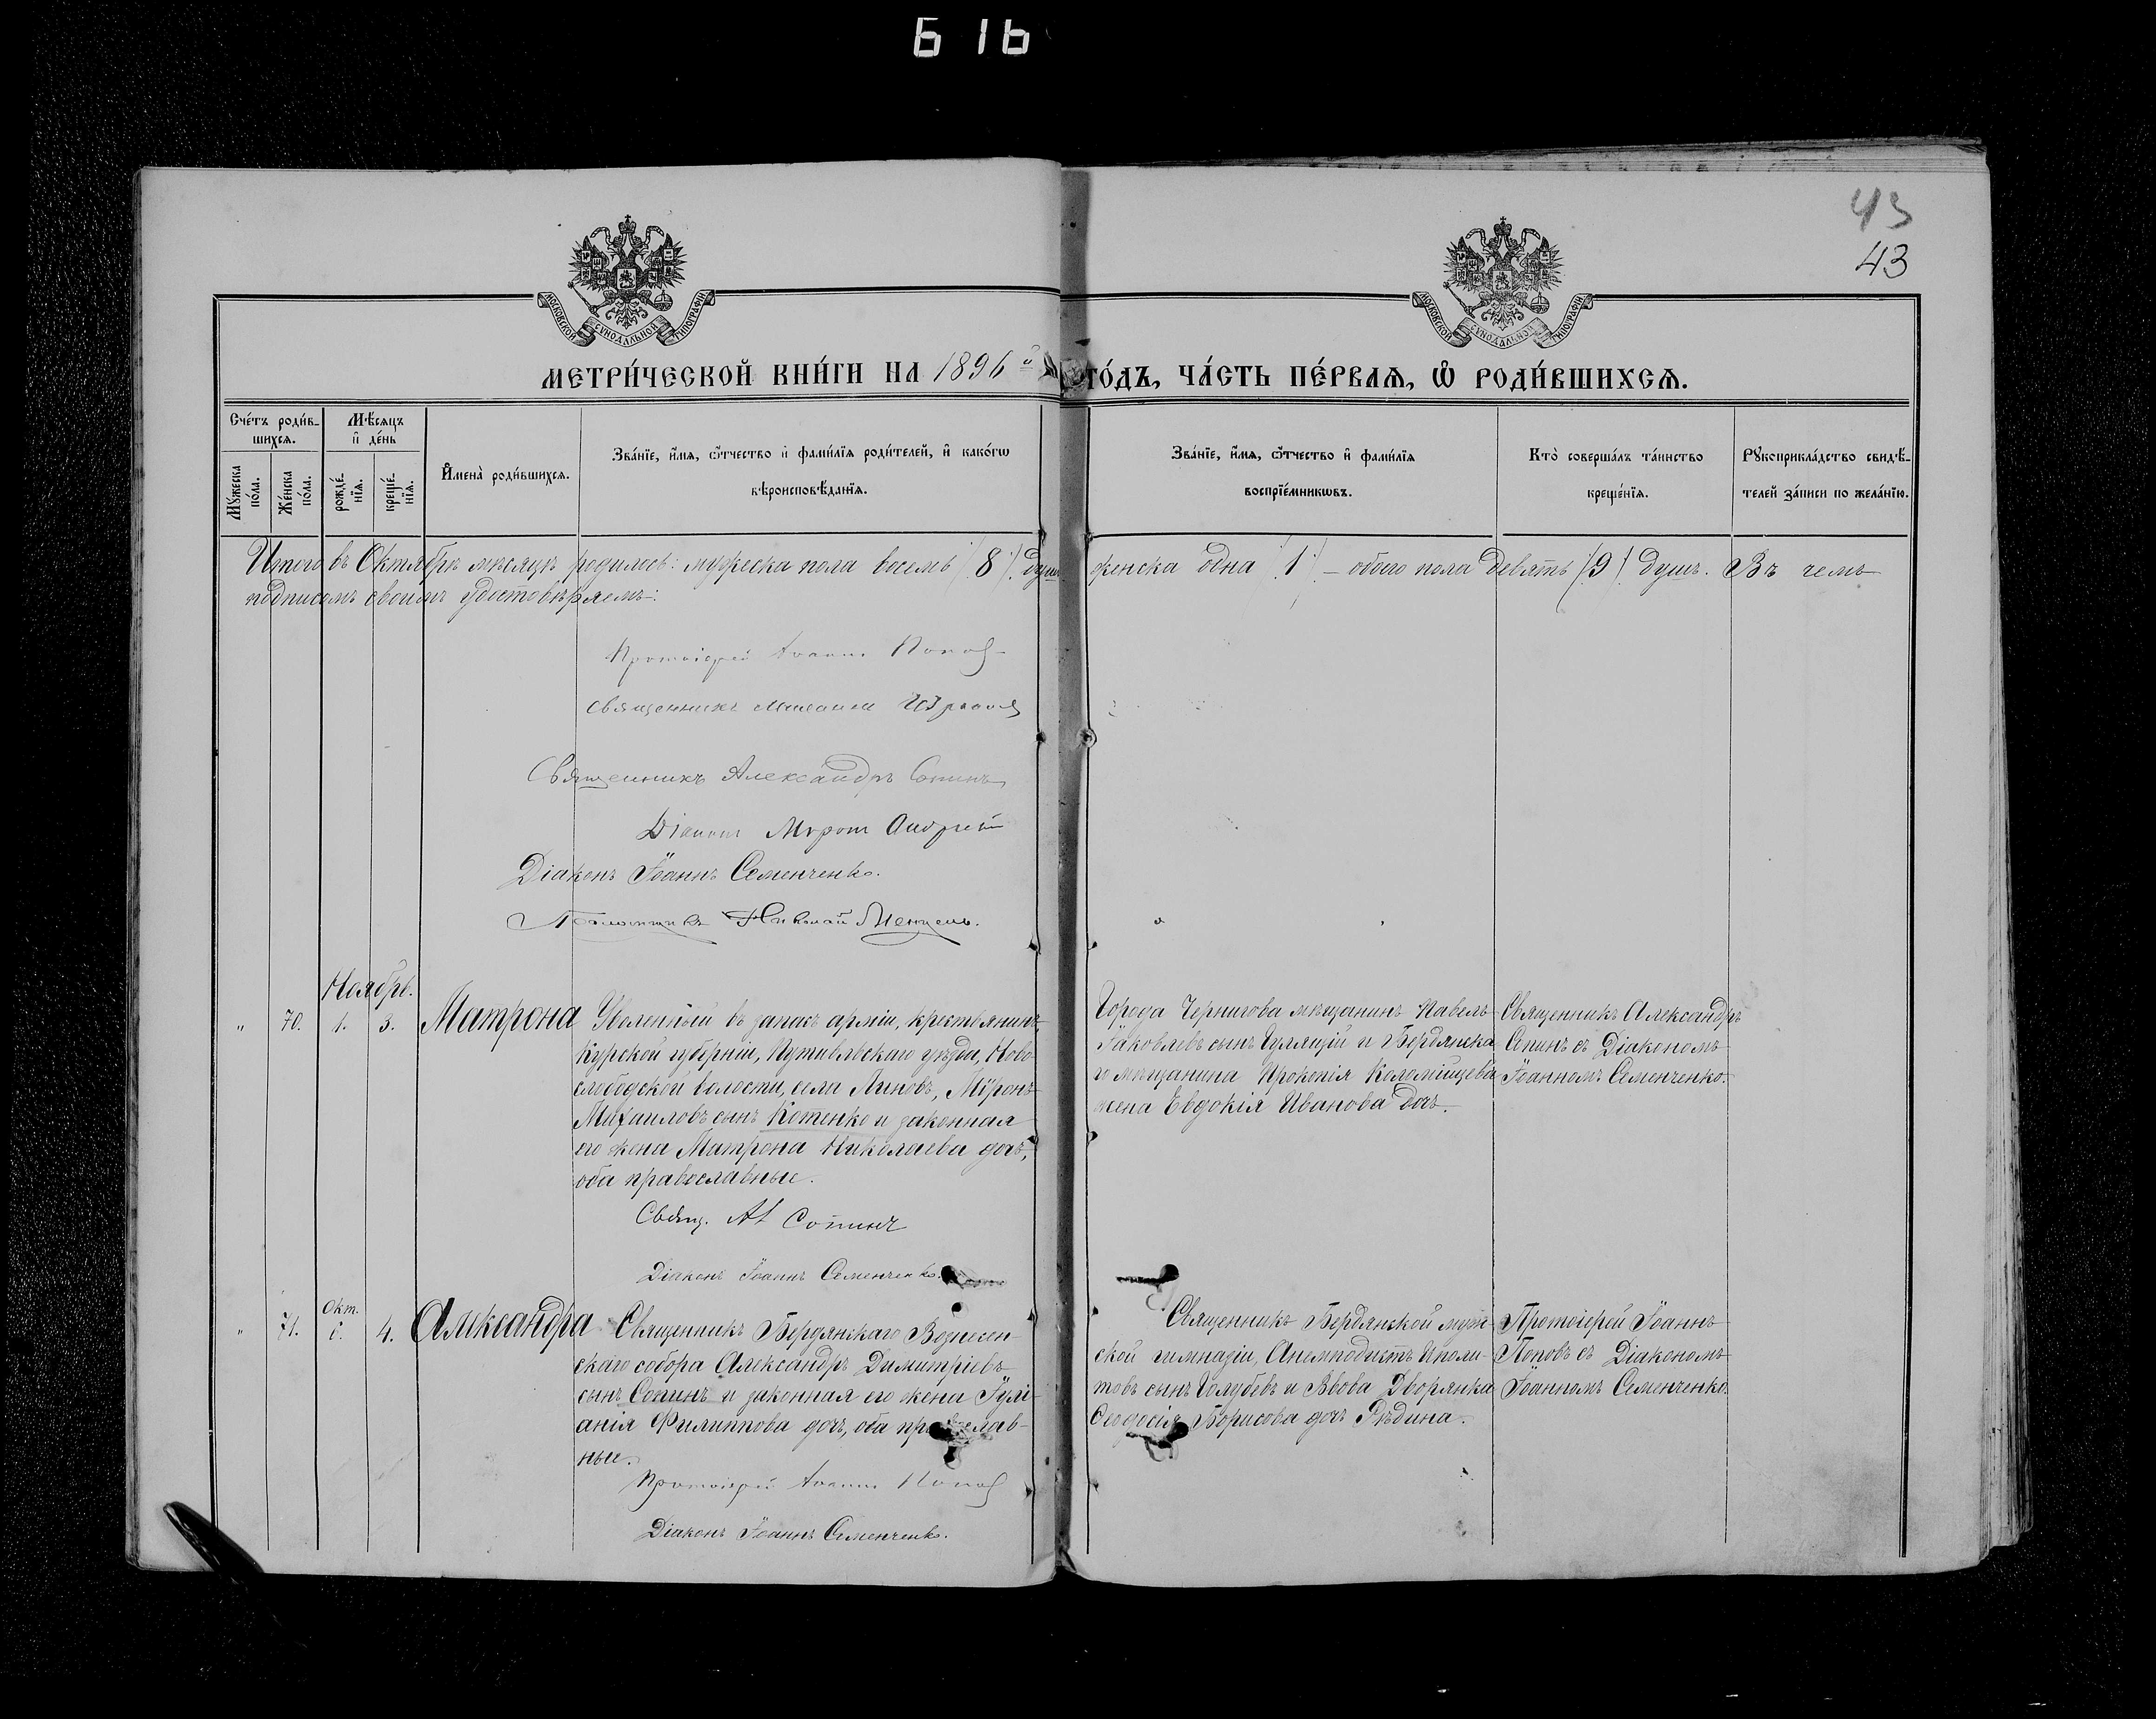 Б 1b
43
43
МОСКОВСКОЙ СѴНОДАЛЬНОЙ ТИПОГРАФІИ
МОСКОВСКОЙ СѴНОДАЛЬНОЙ ТИПОГРАФІИ
МЕТРИ́ЧЕСКОЙ КНИ́ГИ НА 1896й ГО́ДЪ, ЧА́СТЬ ПЕ́РВАѦ, Ѡ҆ РОДИ́ВШИХСѦ.
Сче́тъ роди́в-
шихсѧ.
Мѣ́сѧцъ
и҆ де́нь
Мꙋ́жеска
по́ла.
Же́нска
по́ла.
рожде́-
нїѧ.
креще́-
нїѧ.
И҆мена̀ роди́вшихсѧ.
Зва́нїе, и҆́мѧ, ѻ҆́тчество и҆ фами́лїѧ роди́телей, и҆ како́гѡ
вѣроисповѣ́данїѧ.
Зва́нїе, и҆́мѧ, ѻ҆́тчество и҆ фами́лїѧ
воспрїе́мникѡвъ.
Кто̀ соверша́лъ та́инство
креще́нїѧ.
Рꙋкоприкла́дство свидѣ́-
телей за́писи по жела́нїю.
Итого въ Октябрѣ мѣсяцѣ родилось: мужеска пола восемь (8) душъ женска одна (1) – обоего пола девять (9) душъ. Въ чемъ
подписомъ своимъ удостовѣряемъ:
Протоіерей Іоаннъ Поповъ
Священникъ Михаилъ
Священникъ Александръ Сопинъ
Діаконъ Андрей
Діаконъ Іоаннъ Семенченко.
Псаломщикъ Николай
Ноябрь.
" 70. 1. 3. Матрона
Уволенный въ запасъ арміи, крестьянинъ
Курской губерніи, Путивльскаго уѣзда, Ново-
слободской волости, села Линовъ, Мѵронъ
Михаиловъ сынъ Котенко и законная
его жена Матрона Николаева дочь,
оба православные.
Города Чернигова мѣщанинъ Павелъ
Іаковлевъ сынъ и Бердянска-
го мѣщанина Прокопія Коломійцева
жена Евдокія Иванова дочь.
Священникъ Александръ
Сопинъ съ Діакономъ
Іоанномъ Семенченко.
Свящ. Ал Сопинъ
Діаконъ Іоаннъ Семенченко.
" 71. Окт. 4. Александра
Священникъ Бердянскаго Вознесен-
скаго собора Александръ Димитріевъ
сынъ Сопинъ и законная его жена Іулі-
анія Филиппова дочь, оба православ-
ные.
Священникъ Бердянской муж-
ской гимназіи, Анемподистъ Иполи-
товъ сынъ Голубевъ и вдова Дворянка
Ѳеодосія Борисова дочь Рѣдина.
Протоіерей Іоаннъ
Поповъ съ Діакономъ
Іоанномъ Семенченко.
Протоіерей Іоаннъ Поповъ
Діаконъ Іоаннъ Семенченко.